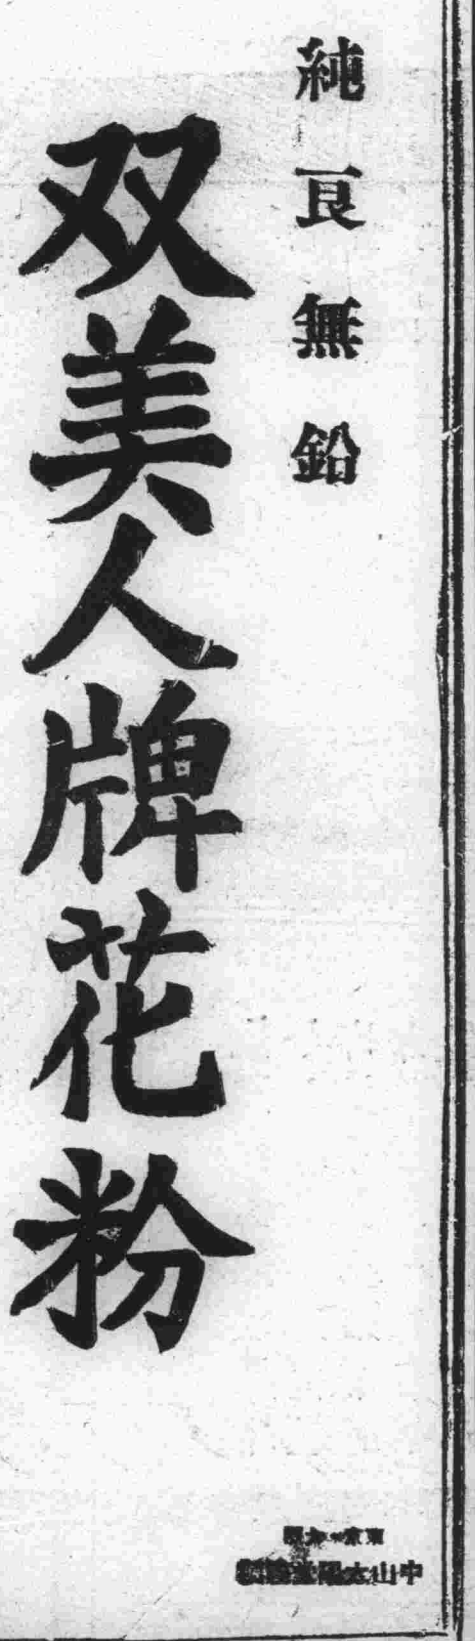 純良無鉛
双美人牌花粉
東京・大阪
中山太陽堂